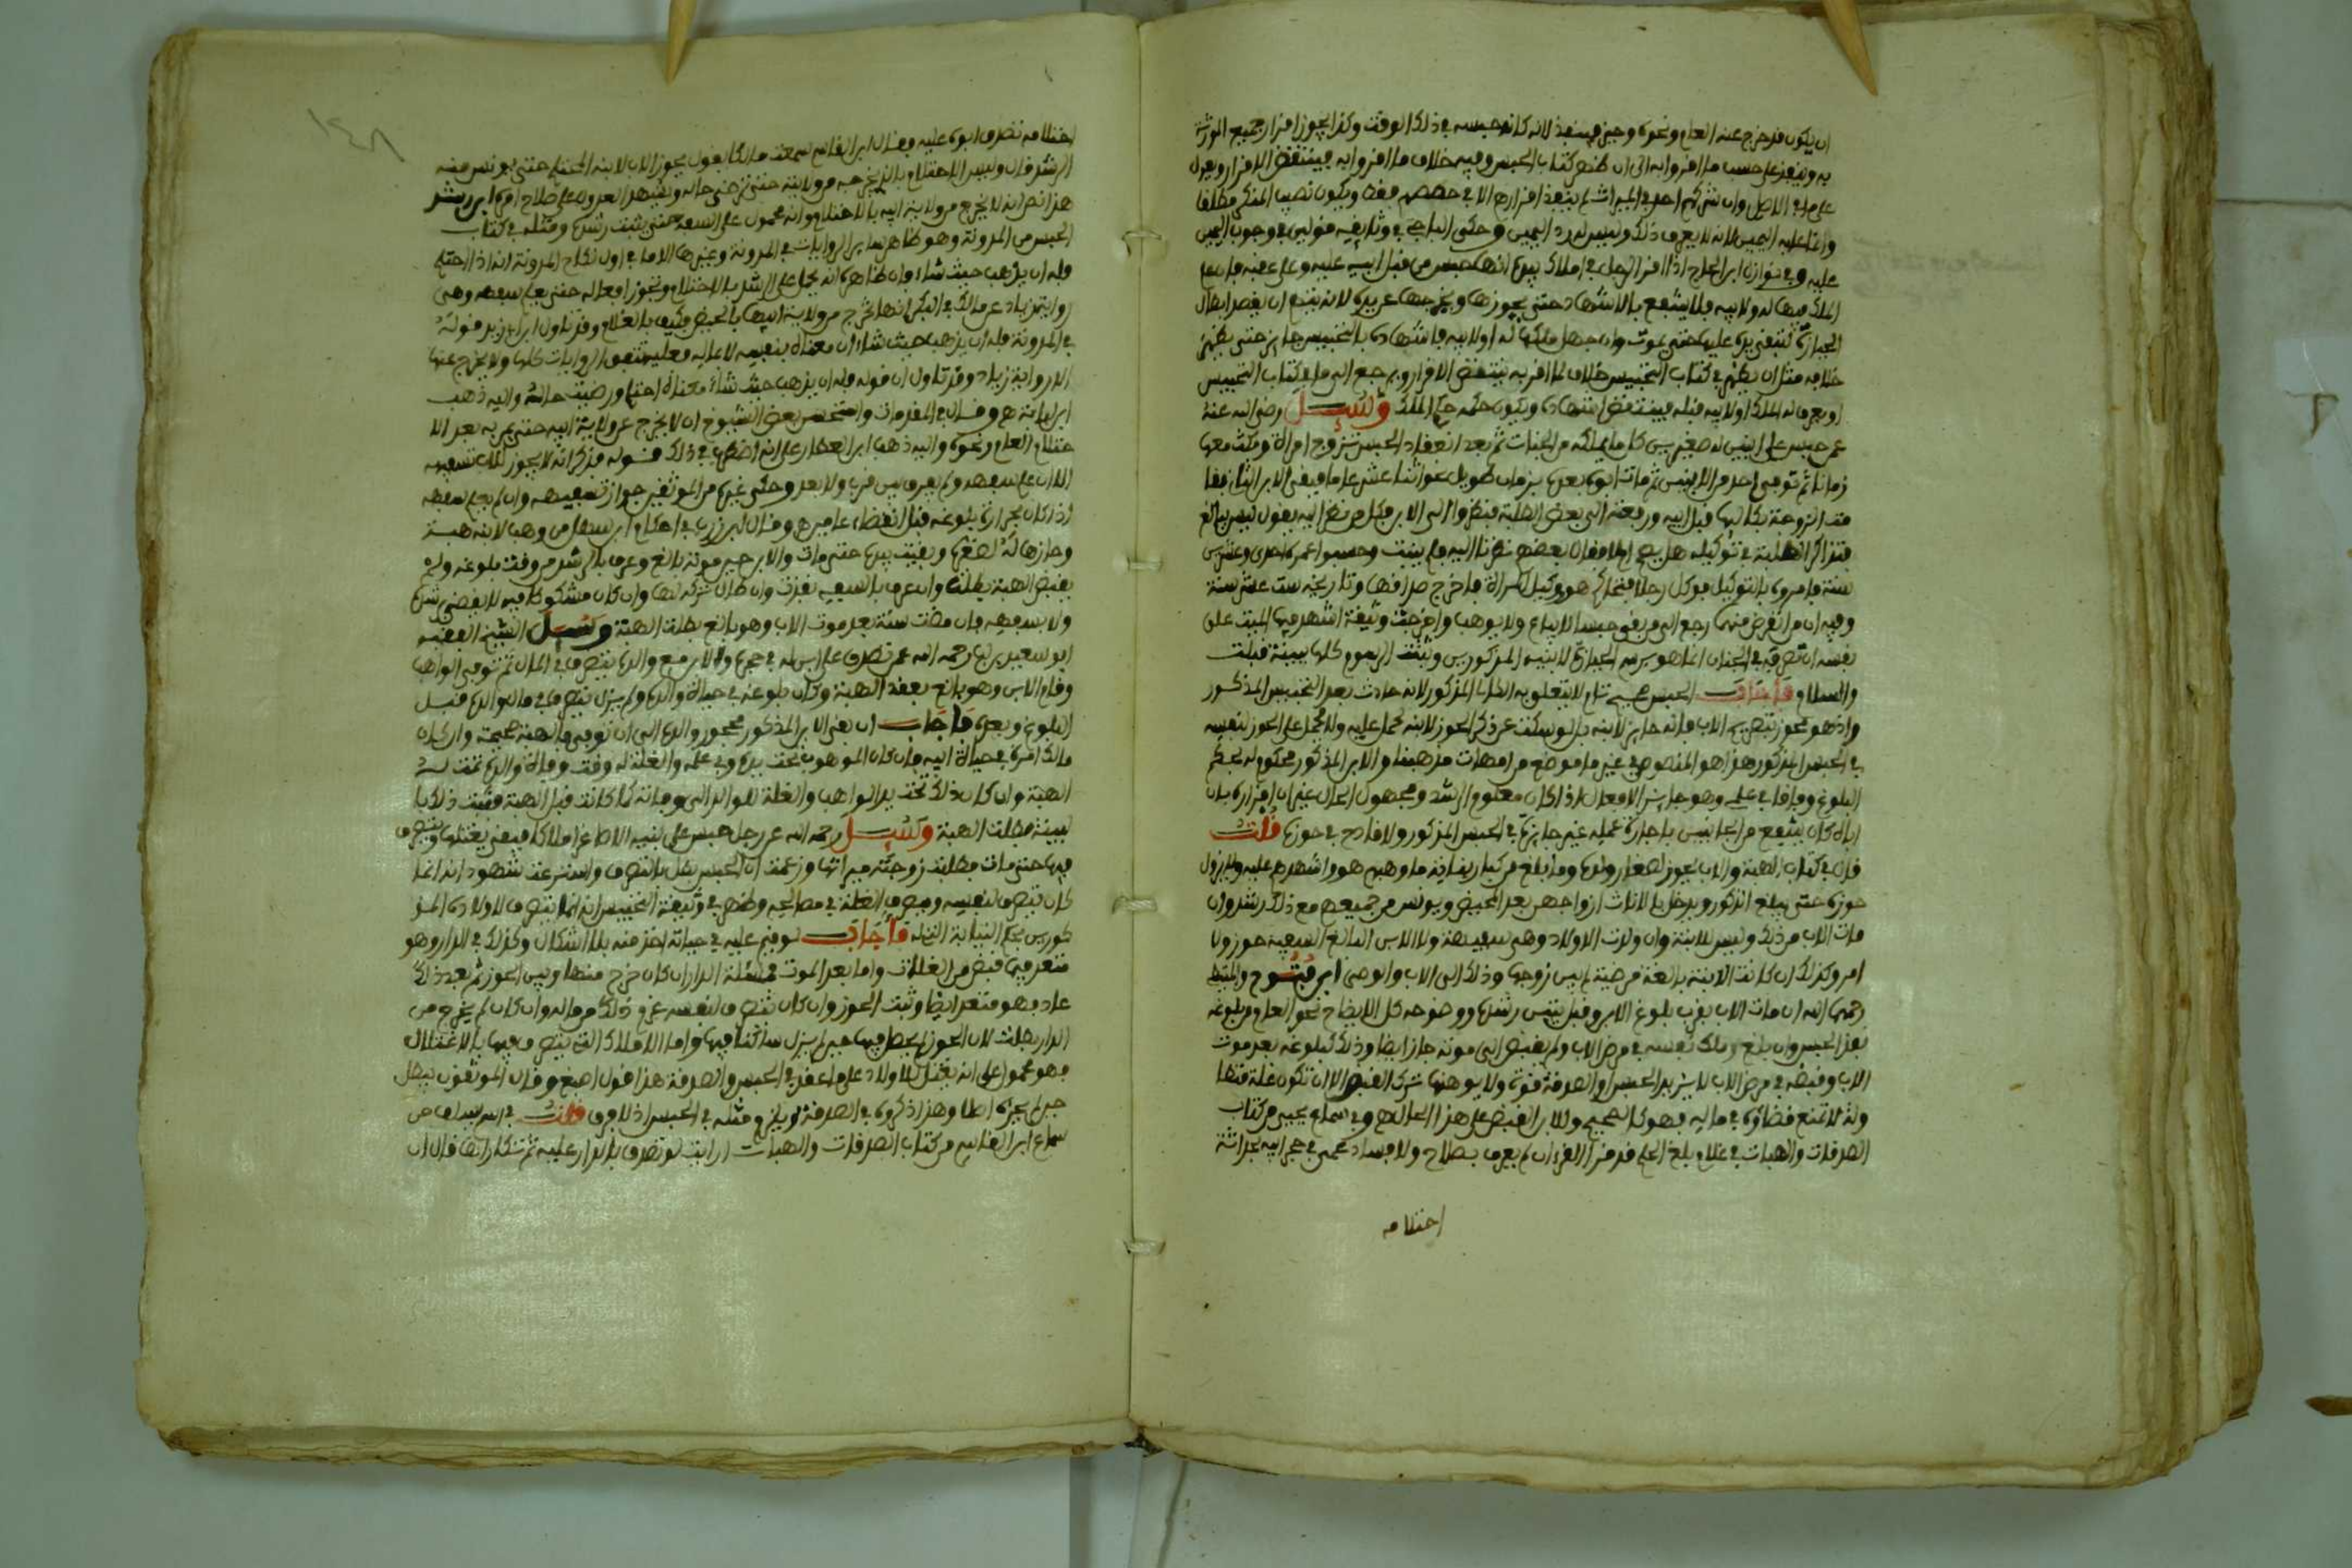 ان يكون قد خرج عنه العام ونحوه وحيز فينفذ لانه كانه حبسه في ذلك الوقت وكذا يجوز اقرار جميع الورثة
به وينفذ على حسب ما اقروا به الى ان يظهر كتاب الحبس وفيه خلاف ما اقروا به فينتقض الاقرار ويعول
على ما في الاصل وان شركهم احد في الميراث لم ينفذ اقرارهم الا في حصصهم فقط ويكون نصيب المنكر مطلقا
وانما عليه اليمين لانه لا يعرف ذلك وليس له رد اليمين وحكى الباجي في وثايقه قولين في وجوب اليمين
عليه وفي نوازل ابن الحاج اذا اقر الرجل في املاك بيده انها حبس من قبل ابيه عليه وعلى عقبه فان علم
الملك فيها له ولابيه فلا ينتفع بالاشهاد حتى يحوزها ويخرجها عن يده لانه يتهم ان يقصد ابطال
الحيازة لتبقى بيده عليها حتى يموت وان جهل ملكها له او لابيه فاشهاده بالتحبيس جايز حتى يظهر
خلافه مثل ان يظهر في كتاب التحبيس خلاف ما اقر به فينتقض الاقرار ويرجع الى ما في كتاب التحبيس
او يعرف له الملك او لابيه قبله فينتقض اشهاده ويكون حكمه حكم الملك وسئل رضي الله عنه
عمن حبس على ابنين له صغيرين كل ما يملكه من الجنات ثم بعد انعقاد الحبس تزوج امراة ومكث معها
زمانا ثم توفي احد من الابنين ثم مات ابوه بعده بزمان طويل نحو اثنا عشر عاما فبقي الابن الثاني فقا
مت الزوجة بكاليها قبل ابيه ورفعته الى بعض الطلبة فنظروا الى الابن فكل من نظر اليه يقول ليس ببالغ
فتذاكر الطلبة في توكيله هل يصح ام لا فقال بعضهم نظرنا اليه فلم ينبت وحسبوا عمره احدى وعشرين
سنة فامروه بالتوكيل فوكل رجلا فتحاكم هو ووكيل المراة فاخرج صداقها وتاريخه ست عشر سنة
وفيه ان من انقرض منهما رجع الى من بقي حبسا لا يباع ولا يوهب واخرجت وثيقة اشهد فيها الميت على
نفسه ان تصرفه في الجنان انما هو برسم الحيازة لابنيه المذكورين وثبتت الرسوم كلها ببينة قبلت
والسلام فاجاب الحبس صحيح تام لا يتعلق به الكالي المذكور لانه حادث بعد التحبيس المذكور
واذ هو محوز بتصريح الاب فانه حايز لابنه بل لو سكت عن ذكر الحوز لابنه لحمل عليه ولا يحمل على الحوز لنفسه
في الحبس المذكور هذا هو المنصوص في غير ما موضع من امهات مذهبنا والابن المذكور محكوم له بحكم
البلوغ وفاقا في علمي وهو جايز الافعال اذا كان معلوم الرشد ومجهول الحال غير ان اقراره بان
اباه كان ينتفع من الجانبين باجازة عمله غير جايزة في الحبس المذكور ولا قادح في حوزه قلت
قال في كتاب الهبة والاب يحوز لصغار ولده وما بلغ من كبار بناته ما وهبهم هو واشهدهم عليه ولا يزول
حوزه حتى يبلغ الذكور ويدخل بالاناث ازواجهن بعد المحيض ويونس من جميعهم مع ذلك رشد وان
مات الاب من ذلك وليس للابنة وان ولدت الاولاد وهي سفيهة ولا الابن البالغ السفيه حوز ولا
امر وكذلك ان كانت الابنة بالغة مرضية لم يبن زوجها وذلك الى الاب والوصي ابن فتوح والمتيطي
رحمهما الله ان مات الاب بقرب بلوغ الابن وقبل تبين رشده ووضوحه كل الايضاح نحو العام من بلوغه
نفذ الحبس وان بلغ وملك نفسه في مرض الاب ولم يقبض الى موته جاز ايضا وذلك كبلوغه بعد موت
الاب وقبضه في مرض الاب لا يزيد الحبس او الصدقة قوة ولا يوهنها شرك القبض الا ان تكون غلة منها
ولانه لا تمنع قضاؤه في ماليه فهو كالصحيح وللابن القبض على هذا الحال اهـ وفي سماع يحيى من كتاب
الصدقات والهبات في غلام بلغ الحلم قد قرا القران لم يعرف بصلاح ولا فساد عمن في حجر ابيه بحداثة
احتلامه
احتلامه تصدق ابوه عليه فقال ابن القاسم سمعت مالكا يقول يحوز الاب لابنه المحتلم حتى يونس منه
الرشد قال وليس الاحتلام بالذي يخرجه من ولايته حتى ترضى حاله ويشهد العدول على صلاح امره ابن رشد
هذا نص انه لا يخرج من ولاية ابيه بالاحتلام وانه محمول على السفه حتى يثبت رشده ومثله في كتاب
الحبس من المدونة وهو ظاهر ساير الروايات في المدونة وغيرها الا ما في اول نكاح المدونة انه اذا احتلم
فله ان يذهب حيث شاء فان ظاهره انه يحمل على الرشد بالاحتلام وتجوز افعاله حتى يعلم سفهه وهي
رواية زياد عن مالك في البكر انها تخرج من ولاية ابيها بالحيض فكيف بالغلام وقد تاول ابن ابي زيد قوله
في المدونة فله ان يذهب حيث شاء ان معناه بنفسه لا بماله فعليه تتفق الروايات كلها ولا يخرج عنها
الا رواية زياد وقد تاول ان قوله فله ان يذهب حيث شاء معناه احتلم ورضيت حالته واليه ذهب
ابن لبابة اهـ وقال في المقدمات واستحسن بعض الشيوخ ان لا يخرج عن ولاية ابيه حتى يمر به بعد الا
حتلام العام ونحوه واليه ذهب ابن العطار على انه اضطرب في ذلك قوله فذكر انه لا يجوز للاب تسفيهه
الا ان علم سفهه ولم يفرق بين قرب ولا بعد وحكى غيره من الموثقين جواز تسفيهه وان لم يعلم سفهه
اذا كان بحرارة بلوغه قبل انقضاء عامين اهـ وقال ابن زرب في احكام ابن سهل من وهب لابنه هبة
وحازها له لصغره وبقيت بيده حتى مات والابن حين موته بالغ وعرف بالرشد من وقت بلوغه ولم
يقبض الهبة بطلت وان عرف بالسفه نفذت وان طال شركه لها وان كان مشكوكا فيه لا يقضى برشده
ولا بسفهه فان مضت سنة بعد موت الاب وهو بالغ بطلت الهبة وسئل الشيخ الفقيه
ابو سعيد بن لب رحمه الله عمن تصدق على ابن له في حجره والابن مع والده يتصرف في المال ثم توفي الواهب
وقام الابن وهو بالغ بعقد الهبة وكان بلوغه في حياة والده ولم يزل يتصرف في مال والده قبل
البلوغ وبعده فاجاب ان بقي الابن المذكور محجور والده الى ان توفي فالهبة صحيحة وان كان
مالك امره في حياة ابيه فان كان الموهوب تحت يده وفي عمله والغلة له وقت وفاة والده تمت له
الهبة وان كان ذلك تحت يد الواهب والغلة للوالد الى وفاته كما كانت قبل الهبة فثبت ذلك با
لبينة بطلت الهبة وسئل رحمه الله عن رجل حبس على بنيه الاصاغر املاكا فبقي يغتلها ويتصرف
فيها حتى مات فطلبت زوجته ميراثها وزعمت ان الحبس بطل بالتصرف واسترعت شهود انه انما
كان يتصرف لنفسه ويصرف الغلة في مصالحه وظهر في وثيقة التحبيس انه انما يتصرف للاولاد المذ
كورين بحكم النيابة النخلة فاجاب لو قيم عليه في حياته اخذ منه بلا اشكال وكذلك في الدار وهو
متعد فيما قبض من الغلات واما بعد الموت فمسئلة الدار ان كان خرج منها وبين الحوز ثم بعد ذلك
عاد فهو متعد ايضا وثبت الحوز وان كان يتصرف لنفسه غرم ذلك من ماله وان كان لم يخرج من
الدار بطلت لان الحوز لم يحصل فيها حين لم يزل ساكنا فيها واما الاملاك التي يتصرف فيها بالاغتلال
فهو محمول على انه يغتل للاولاد على ما عقد في الحبس والصدقة هذا قول اصبغ وقال الموثقون تبطل
حين لم يجز اصلا وهذا ذكروه في الصدقة ويلزم مثله في الحبس اذ لا فرق قلت في
سماع ابن القاسم من كتاب الصدقات والهبات ارايت لو تصدق بالدار عليه ثم تكاراها قال ان